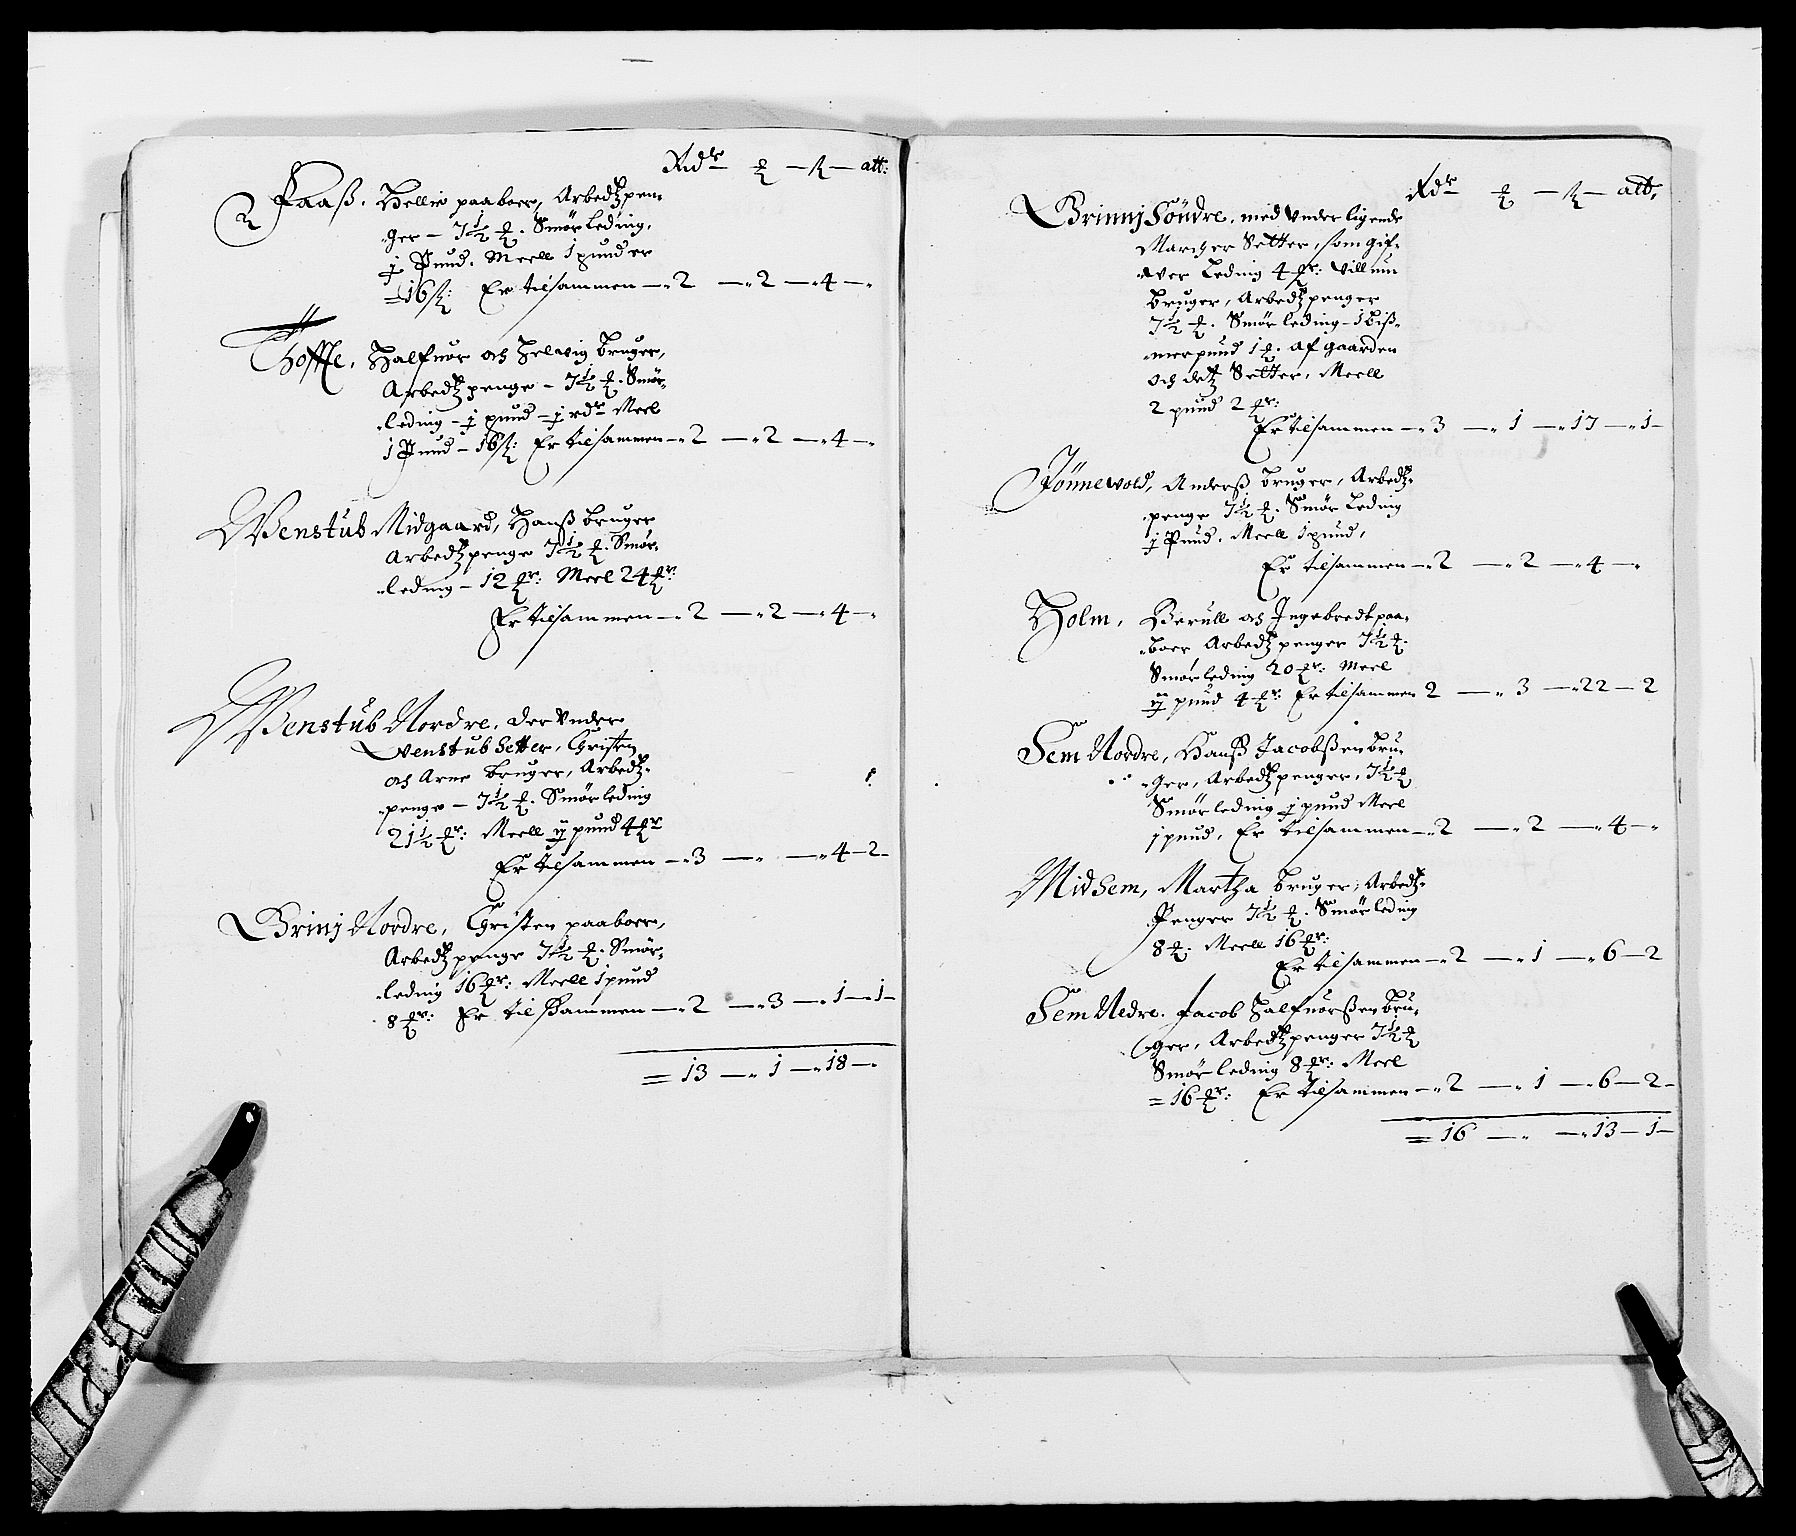 Rdr — ℔ — ß — alb:
Faaß. Hellie paaboer, Arbedtzpen-
ger — 7½ ℔. Smørleding,
j Pund. Meell 1 pund er
=16 ß: Er tilsammen — 2 — 2 — 4 —
Hoffte, Halfuor och Helwig bruger,
Arbedtzpenge — 7½ ℔. Smør-
leding — j pund — j rdr Meel
1 Pund — 16 ß: Er tilsammen — 2 — 2 — 4 —
Wenstub Midgaard, Hanß bruger
Arbedtzpenge 7½ ℔. Smør-
leding — 12 ℔r: Meel 24 ℔r:
Er tilsammen — 2 — 2 — 4 —
Wenstub Nordre, der Vnder
Venstub Setter, Christen
och Arne bruger, Arbedtz-
penge — 7½ ℔. Smørleding
21½ ℔r: Meell ij pund 4 ℔r
Er tilsammen — 3 — — 4 — 2 —
Brinj Nordre, Christen paaboer,
Arbedtzpenge 7½ ℔. Smør-
leding 16 ℔r: Meell 1 pund
8 ℔r: Er tilsammen — 2 — 3 — 1 — 1 —
= 13 — 1 — 18 —
Rdr — ℔ — ß — alb,
Brinnj Söndre, med Vnderligende
Marcher Setter, som gif-
wer Leding 4 ℔r: Villum
bruger, Arbedtzpenger
7½ ℔. Smørleding — 1 biß-
merpund 1 ℔. af gaarden
och detz Setter, Meell
2 pund 2 ℔r:
Er tilsammen — 3 — 1 — 17 — 1 —
Jönnevold, Anderß bruger, Arbedtz-
penge 7½ ℔. Smør Leding
j Pund. Meell 1 pund,
Er tilsammen — 2 — 2 — 4 —
Holm, Berull och Ingebredt paa-
boer Arbedtzpenger 7½ ℔.
Smørleding 20 ℔r: Meel
ij pund 4 ℔r: Er tilsammen 2 — 3 — 22 — 2
Sem Nordre, Hanß Jacobßen bru-
ger, Arbedtzpenger, 7½ ℔
Smørleding j pund Meel
1 pund, Er tilsammen — 2 — 2 — 4 —
Midsem, Martha bruger, Arbedtz-
Penger 7½ ℔. Smørleding
8 ℔. Meell 16 ℔r:
Er tilsammen — 2 — 1 — 6 — 2
Sem Nedre. Jacob Halfuorßen bru-
ger, Arbedtzpenger 7½ ℔
Smørleding 8 ℔r: Meel
=16 ℔r: Er tilsammen — 2 — 1 — 6 — 2 —
= 16 — — 13 — 1 —